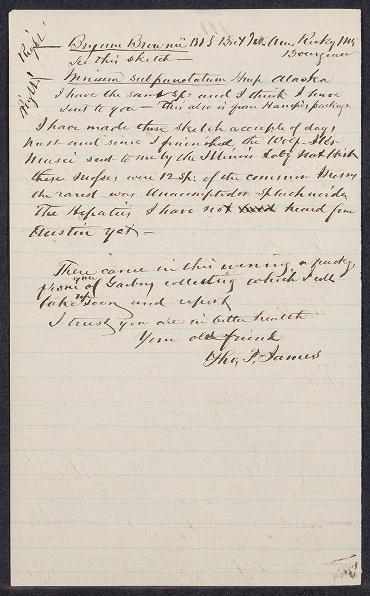 Right! — Bryum Brownii B & S Brit. N. Am. Rocky Mts
See this sketch — Bourgeau
Right! — Mnium subpunctatum Hmp. Alaska
I have the same sp: and I think I have
sent to you — this also is from Hampe's package
I have made these sketch a couple of days
past and since I finished, the
Musci sent to me by the Illinois Lab. Nat Hist
these Musci were 12 sp: of the common Mosses
the rarest was Anacamptodon splachnoides
The Hepaticæ I have not heard from
Austin yet —
There came in this evening a package
from you of collecting which I will
take up soon and report
I trust you are in better health
Your old friend
Tho. P. James